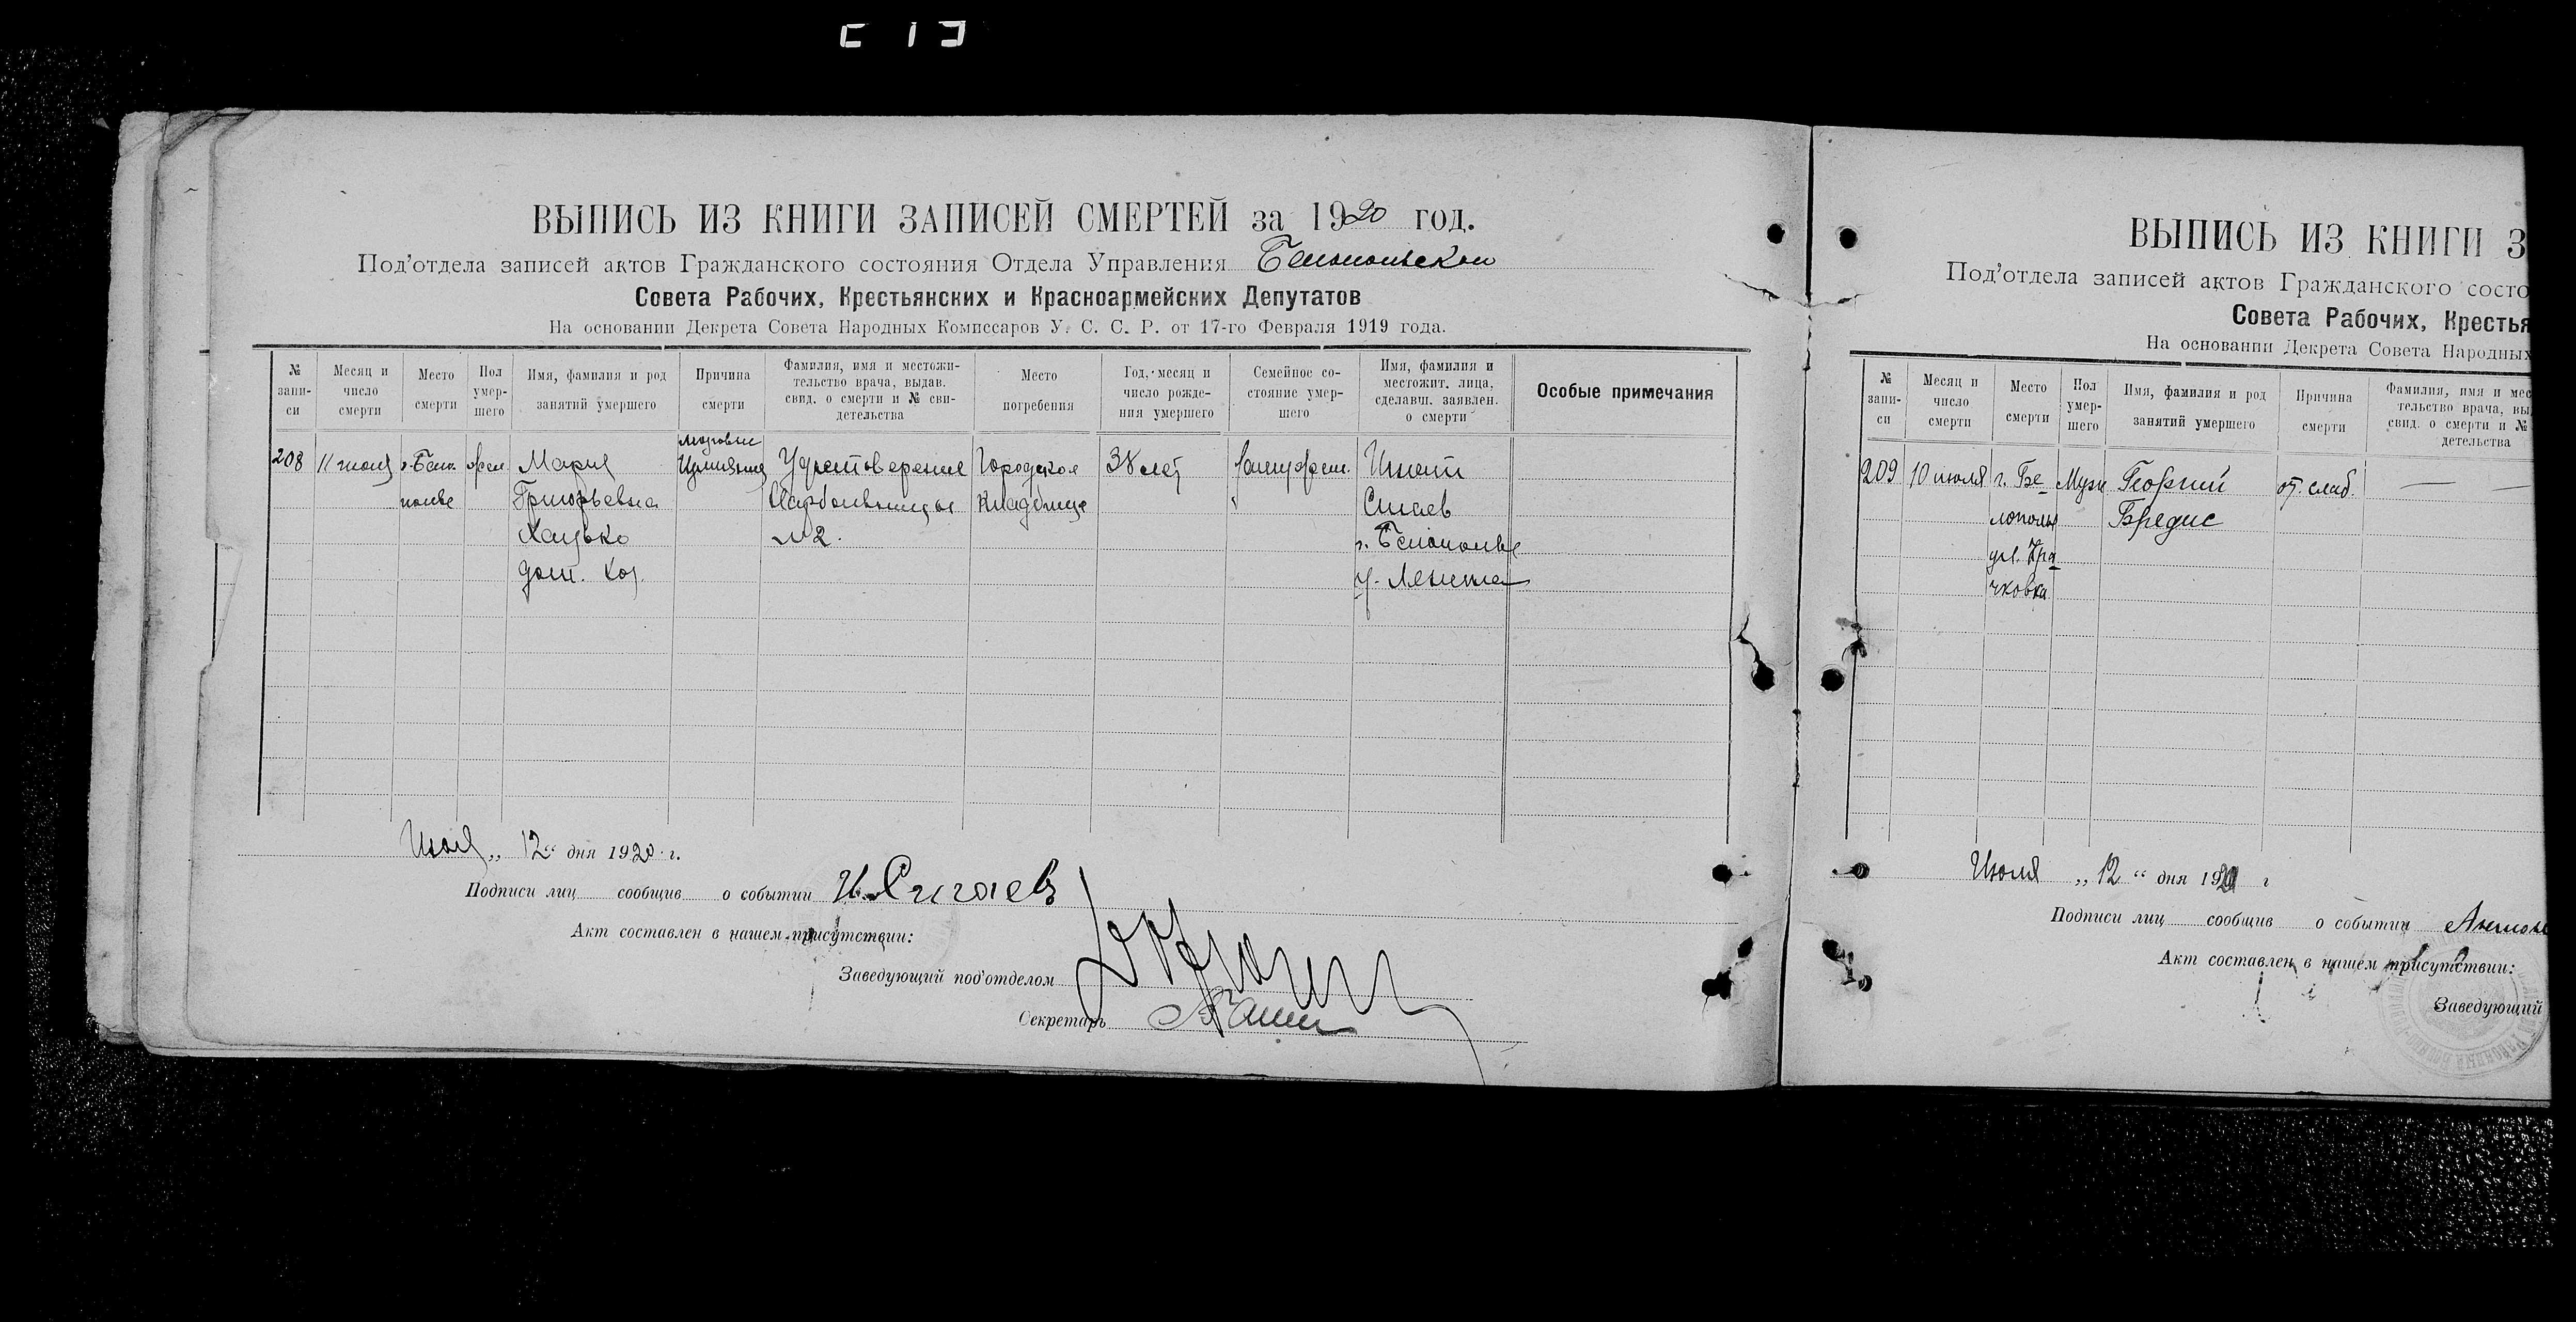 ВЫПИСЬ ИЗ КНИГИ ЗАПИСЕЙ СМЕРТЕЙ за 1920 год.
Под'отдела записей актов Гражданского состояния Отдела Управления
Совета Рабочих, Крестьянских и Красноармейских Депутатов
На основании Декрета Совета Народных Комиссаров У. С. С. Р. от 17-го Февраля 1919 года.
№ запи-си
Месяц и число смерти
Место смерти
Пол умер-шего
Имя, фамилия и род занятий умершего
Причина смерти
Фамилия, имя и местожи-тельство врача, выдав. свид. о смерти и № сви-детельства
Место погребения
Год, месяц и число рожде-ния умершего
Семейное со-стояние умер-шего
Имя, фамилия и местожит. лица, сделавш. заявлен. о смерти
Особые примечания
208 Мария Удостоверение Городское 38 лет
Григорьевна Кладбище
№2. г. Белополье
дом. хоз. у. Ленина
Июля „12“ дня 1920 г.
Подписи лиц сообщив о событии
Акт составлен в нашем присутствии:
Заведующий под'отделом
Секретарь
ВЫПИСЬ ИЗ КНИГИ З
Под'отдела записей актов Гражданского состо
Совета Рабочих, Крестья
На основании Декрета Совета Народных
№ запи-си
Месяц и число смерти
Место смерти
Пол умер-шего
Имя, фамилия и род занятий умершего
Причина смерти
Фамилия, имя и мес
тельство врача, вы
свид. о смерти и №
детельства
209 10 июля г. Бе Муж Георгий от. слаб.
лополье Бредис
ул. Кра
чковка
Июля „12“ дня 1920 г
Подписи лиц сообщив о событии
Акт составлен в нашем присутствии:
Заведующий